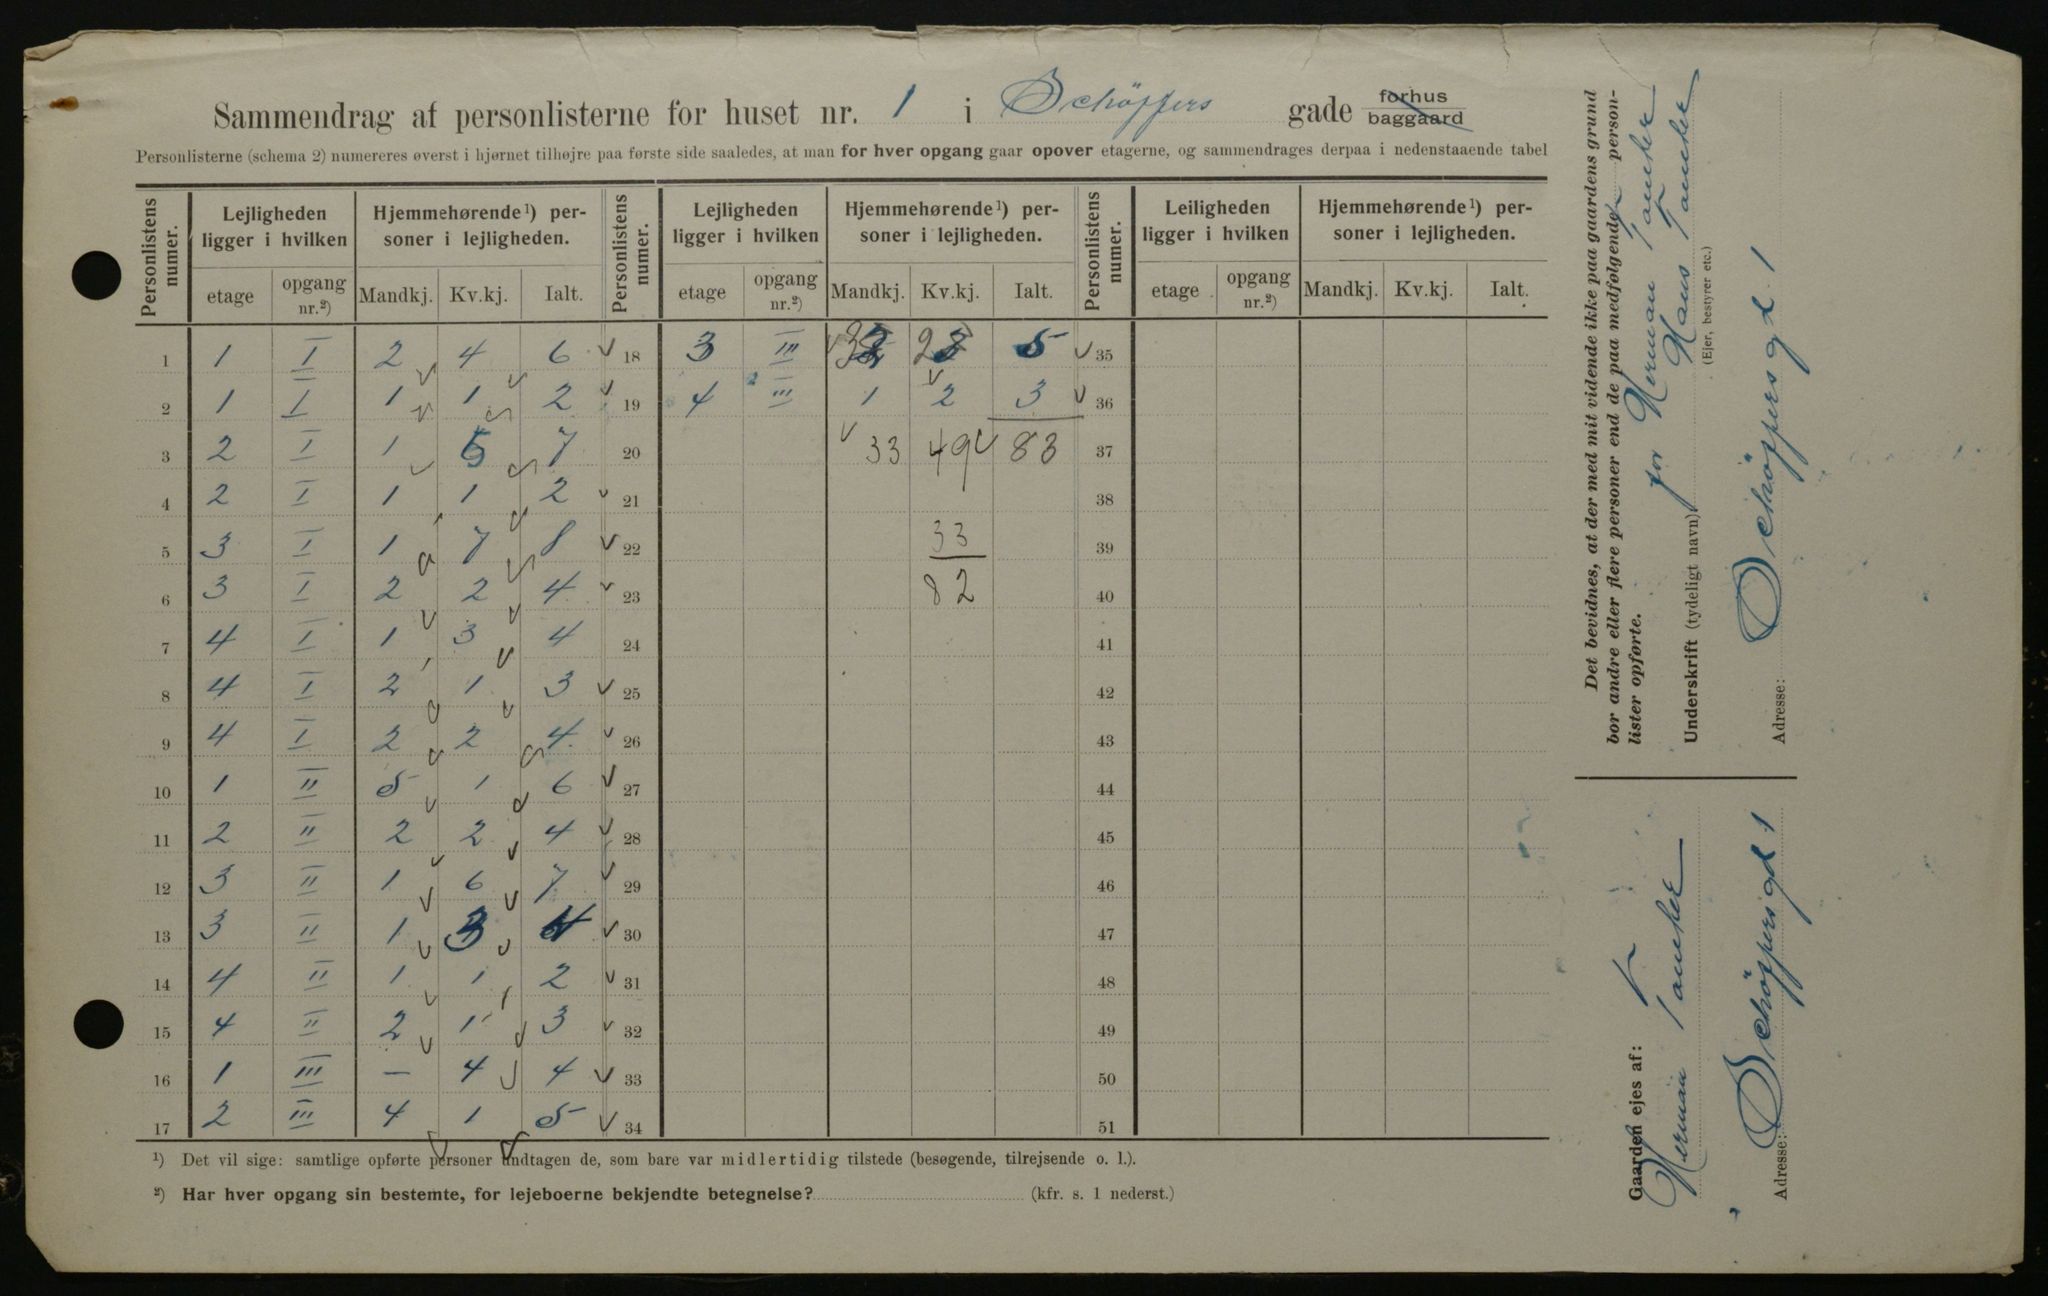 Sammendrag af personlisterne for huset nr. 1 i Schöppers gade forhus baggaard
Personlisterne (schema 2) numereres øverst i hjørnet tilhøjre paa første side saaledes, at man for hver opgang gaar opover etagerne, og sammendrages derpaa i nedenstaaende tabel
Personlistens numer. Lejligheden ligger i hvilken Hjemmehørende ¹) personer i lejligheden. Personlistens numer. Lejligheden ligger i hvilken Hjemmehørende ¹) personer i lejligheden. Personlistens numer. Leiligheden ligger i hvilken Hjemmehørende ¹) personer i lejligheden.
etage opgang nr.²) Mandkj. Kv.kj. Ialt. etage opgang nr.²) Mandkj. Kv.kj. Ialt. etage opgang nr.²) Mandkj. Kv.kj. Ialt.
1 1 I 2 4 6 18 3 III 3 2 5 35
2 1 I 1 1 2 19 4 III 1 2 3 36
3 2 I 1 6 7 20 33 49 83 37
4 2 I 1 1 2 21 38
5 3 I 1 7 8 22 33 39
6 3 I 2 2 4 23 82 40
7 4 I 1 3 4 24 41
8 4 I 2 1 3 25 42
9 4 I 2 2 4 26 43
10 1 II 5 1 6 27 44
11 2 II 2 2 4 28 45
12 3 II 1 6 7 29 46
13 3 II 1 3 4 30 47
14 4 II 1 1 2 31 48
15 4 II 2 1 3 32 49
16 1 III – 4 4 33 50
17 2 III 4 1 5 34 51
¹) Det vil sige: samtlige opførte personer undtagen de, som bare var midlertidig tilstede (besøgende, tilrejsende o. l.).
²) Har hver opgang sin bestemte, for lejeboerne bekjendte betegnelse? (kfr. s. 1 nederst.)
Det bevidnes, at der med mit vidende ikke paa gaardens grund
bor andre eller flere personer end de paa medfølgende personlister opførte.
for Herman Tanker
Underskrift (tydeligt navn) Hans Tanker
(Ejer, bestyrer etc.)
Adresse: Schöppersgd. 1
Gaarden ejes af:
Herman Tanker
Adresse: Schöppersgd 1